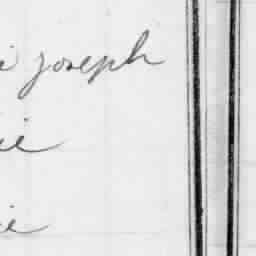 i joseph
ie
ie